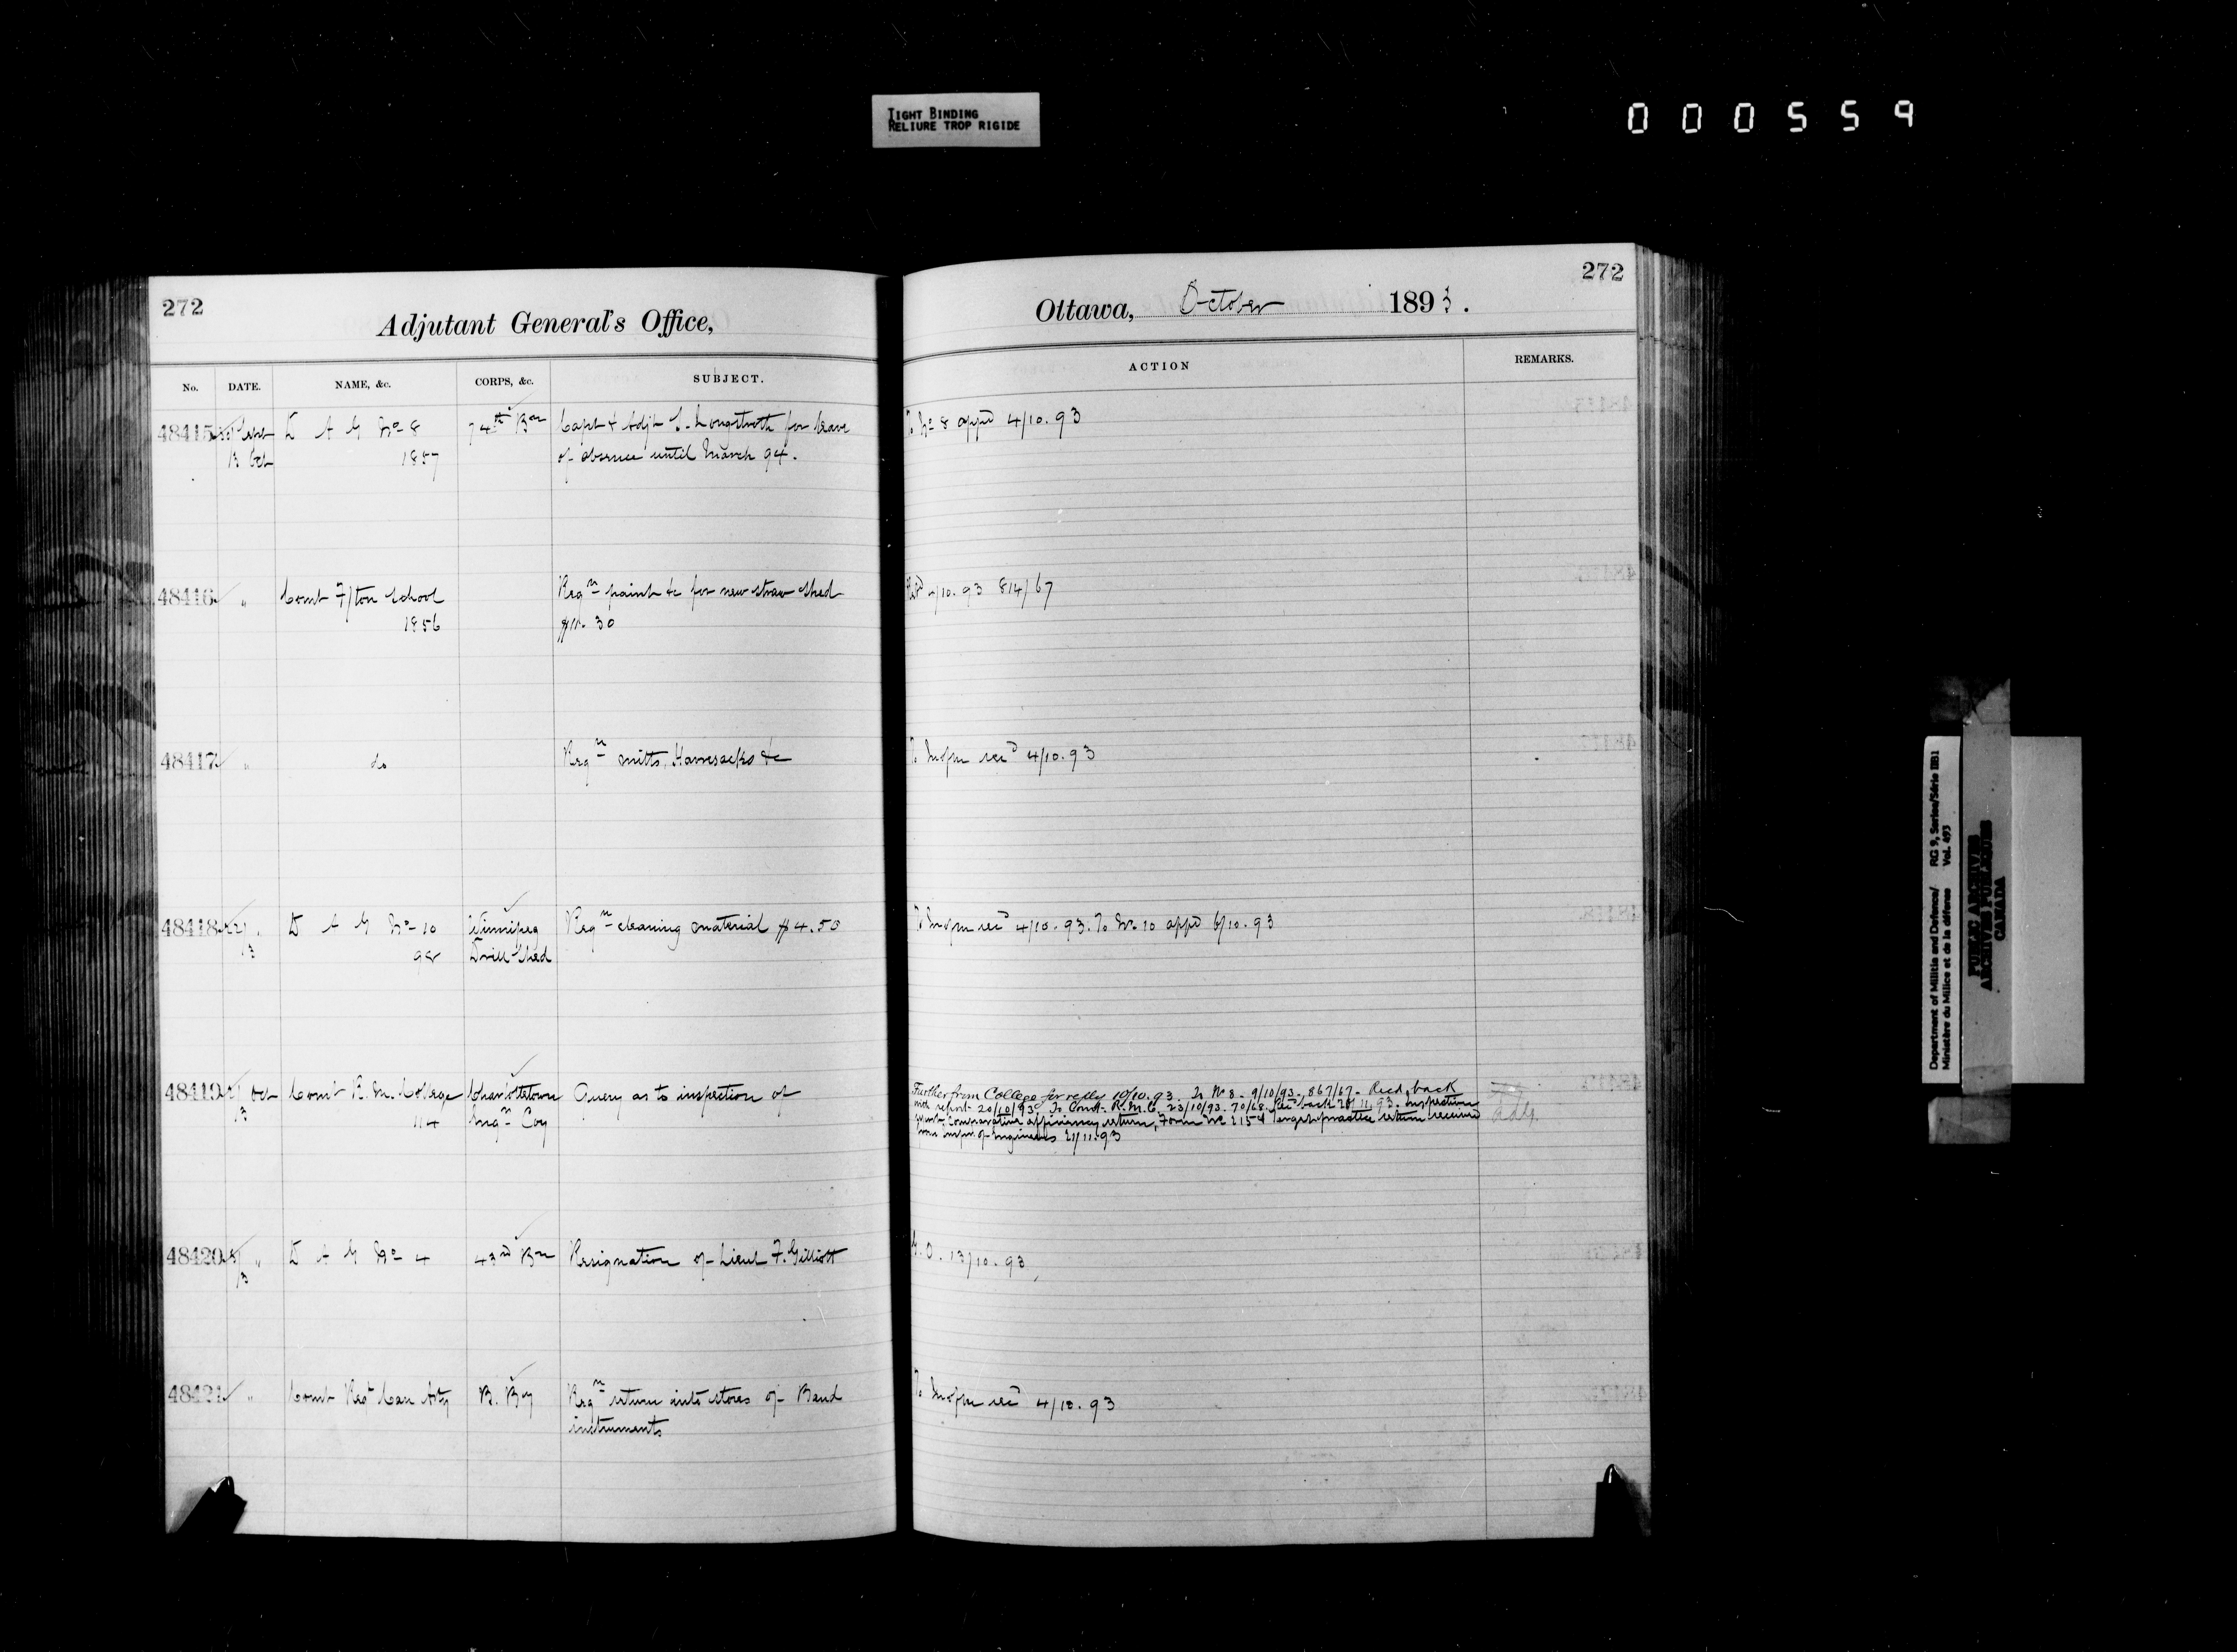 TIGHT BINDING
RELIURE TROP RIGIDE
000559
272
Adjutant General's Office,
No. DATE. NAME, &c. CORPS, &c. SUBJECT.
48415 Sept D A G No 8 74th Bn Capt & Adjt Longstroth for leave
13 Oct 1857 of absence until March 94.
48416 " Comt F/ton School Reqn paint &c for new straw shed
1856 $11.30
48417 " do Reqn mitts, Haversacks &c
48418 " D A G No 10 Winnipeg Reqn cleaning material $4.50
/3 98 Drill Shed
48419 Oct Comt R. M. College Charlottetown Query as to inspection of
/3 114 Engn Coy
48420 " D A G No 4 43rd Bn Resignation of Lieut F. Gilliott
/3
48421 " Comt Regt Can Arty B. By Reqn return into stores of Band
instruments
272
Ottawa, October 1893.
ACTION REMARKS.
To No 8 appd 4/10.93
/10.93 814/67
To recd 4/10.93
To recd 4/10.93. To No 10 appd 6/10.93
Further from College for reply 10/10.93. To No 8. 9/10/93. 867/67. Recd back
with report 20/10/93 To Comt. R.M.C. 23/10/93. 70/68. Recd back 11.93. Inspection
Comparative efficiency return, Form No practice return received
from of Engineers 21/11.93
G.O. 13/10.93
To recd 4/10.93
Department of Militia and Defence/ RG 9, Series/Série IIB1
Ministère du Milice et de la défense Vol. 493
PUBLIC ARCHIVES
ARCHIVES PUBLIQUES
CANADA